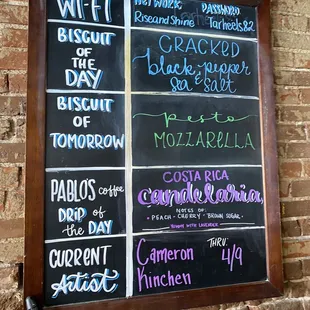 WI-FI
NETWORK PASSWORD
RiseandShine Tarheels82
BISCUIT
OF THE
DAY
CRACKED
black pepper
& sea salt
BISCUIT
OF
TOMORROW
pesto
MOZZARELLA
PABLO'S coffee
DRIP of
the DAY
COSTA RICA
candelaria
NOTES OF:
• PEACH • CHERRY • BROWN SUGAR •
CURRENT
Artist
Cameron
Kinchen
THRU
4/9